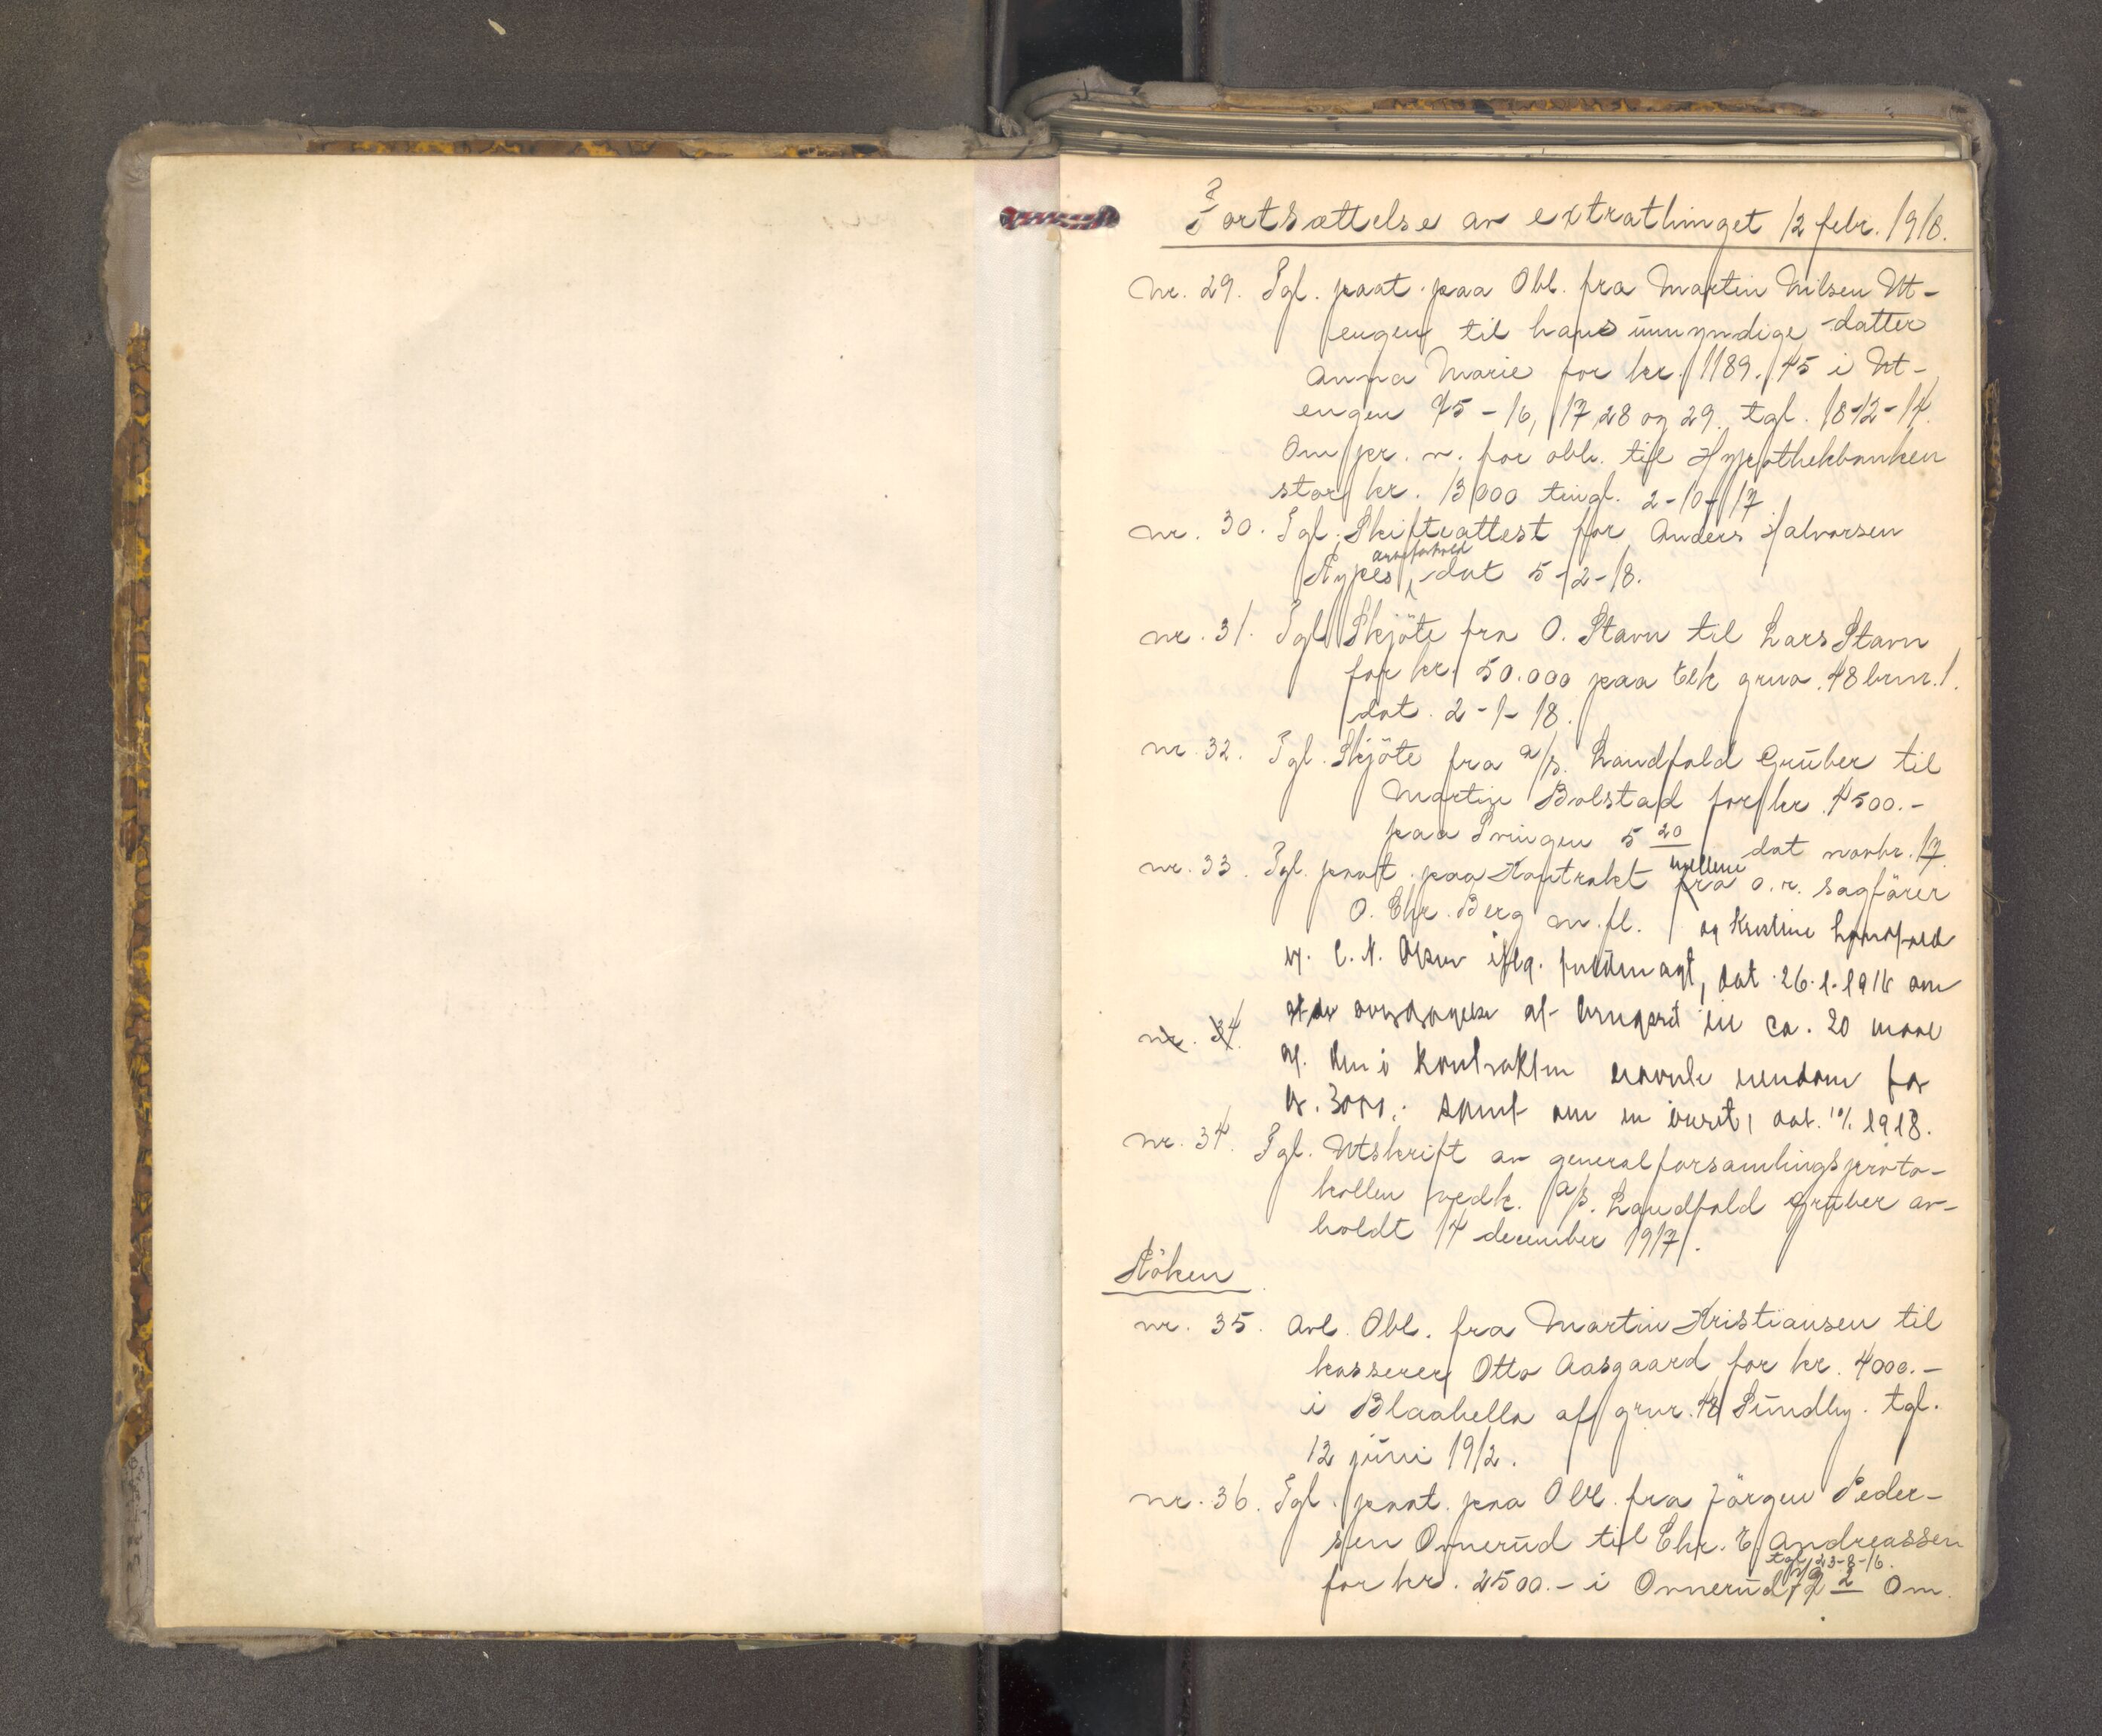 Fortsættelse av extrathinget 12 febr. 1918.
Nr. 29. Tgl. paat. paa Obl. fra Martin Nilsen Ut-
engen til hans umyndige datter
Anna Marie for kr. 1189.45 i Ut-
engen 75-16, 17 28 og 29. tgl. 18-12-14.
Om pr. v. for obl. til Hypothekbanken
stor kr. 13000 tingl. 2-10-17
nr. 30. Tgl. Skifteattest for Anders Halvorsen
Rypes arveforhold dat 5-2-18.
nr. 31. Tgl. Skjöte fra O. Stavn til Lars Stavn
for kr. 50.000 paa Eek grno. 48 brnr. 1.
dat. 2-1-18.
nr. 32. Tgl. Skjöte fra A/S. Landfald Gruber til
Martin Bolstad for kr. 4500.-
paa Svingen 5 20 dat novbr. 17.
nr. 33. Tgl. paat. paa Kontrakt mellem o.r. sagförer
O. Chr. Berg m. fl. og Kristine Landfald
v. C. N. Olsen iflg. fuldmagt, dat. 26.1.1918 om
overdragelse af brugsret til ca. 20 maal
nr. 34.
af den i kontrakten nævnte eiendom for
kr. 3000,- samt om en veiret, dat. 1918.
nr. 34. Tgl. Utskrift av generalforsamlingsproto-
kollen vedk. A/S. Landfald Gruber av-
holdt 14 december 1917.
Röken
nr. 35. Avl. Obl. fra Martin Kristiansen til
kasserer Otto Aasgaard for kr. 4000.-
i Blaahella af grnr. 48 Sundby. tgl.
12 juni 1912.
nr. 36. Tgl. paat. paa Obl. fra Jörgen Peder-
sen Ovnerud til Chr. E. Andreassen
tgl. 23-8-16.
for kr. 2500.- i Ovnerud 12 2 Om.